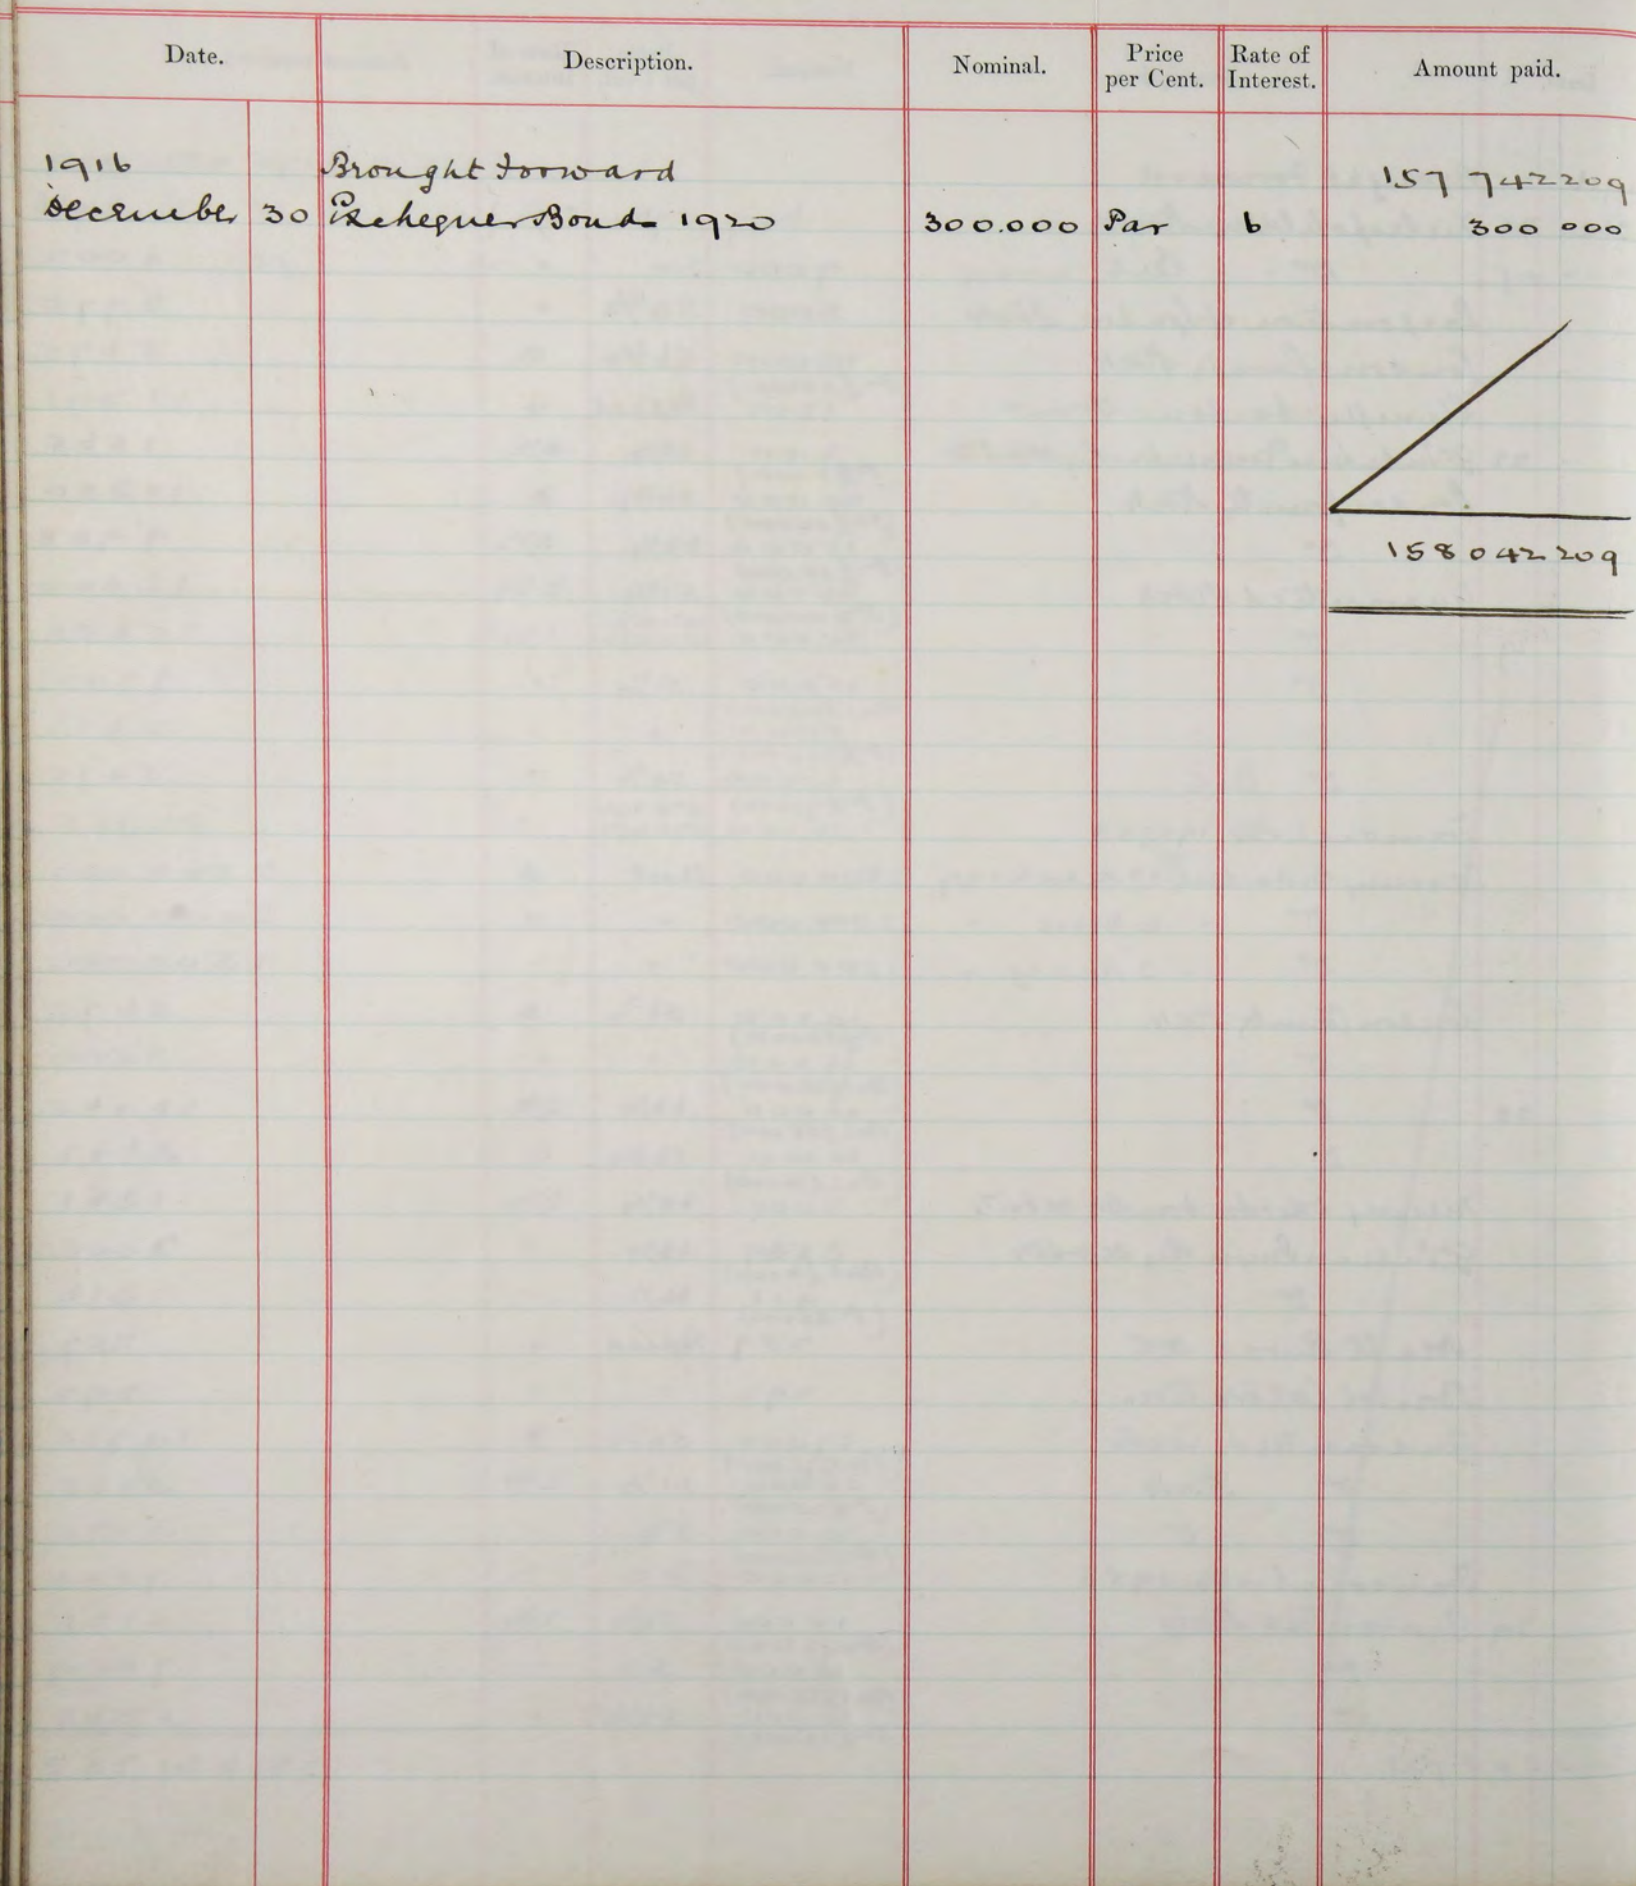 Date. Description. Nominal. Price per Cent. Rate of Interest. Amount paid.
1916 Brought forward 157 742 209
December 30 Exchequer Bonds 1920 300.000 Par 6 300 000
158 042 209